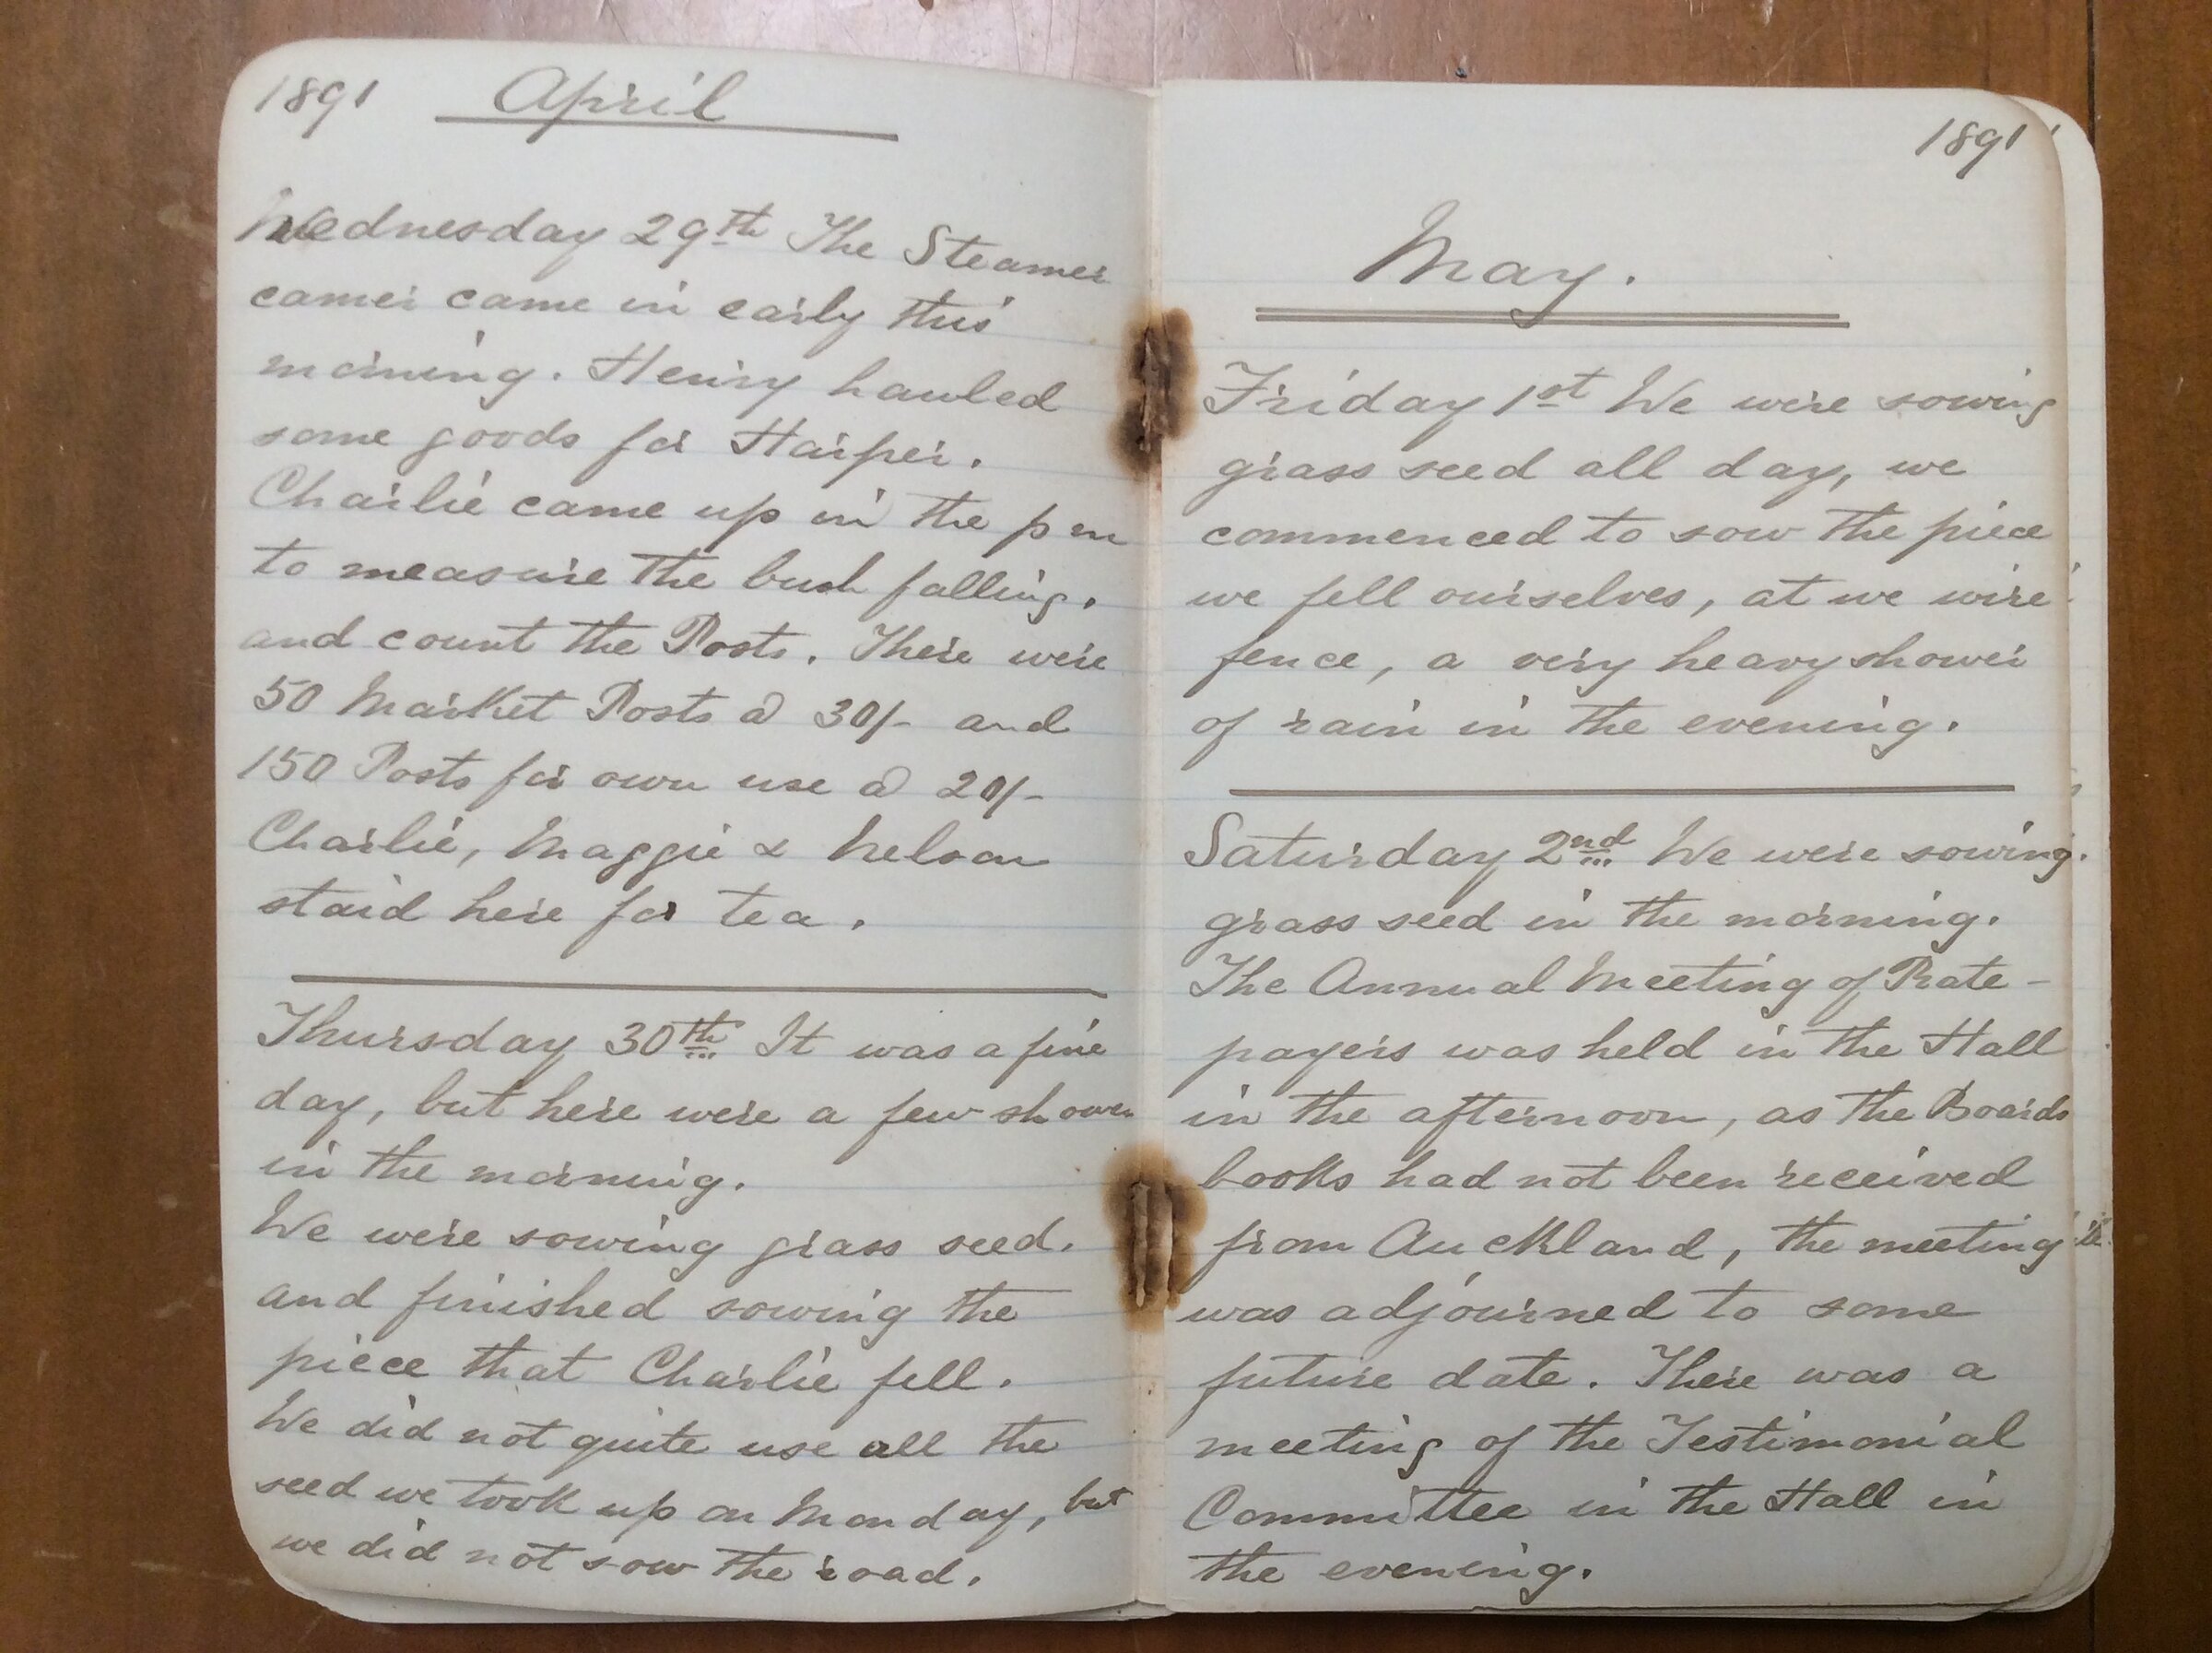 1891 April
Wednesday 29th The Steamer
camer came in early this
morning. Henry hauled
some goods for Harper.
Charlie came up in the pm
to measure the bush falling.
and count the Posts. There were
50 Market Posts @ 30/- and
150 Posts for own use @ 20/-
Charlie, Maggie & Nelson
staid here for tea.
Thursday 30th It was a fine
day, but here were a few showers
in the morning.
We were sowing grass seed.
and finished sowing the
piece that Charlie fell.
We did not quite use all the
seed we took up on Monday, but
we did not sow the road.
1891
May.
Friday 1st We were sowing
grass seed all day, we
commenced to sow the piece
we fell ourselves, at we wire
fence, a very heavy shower
of rain in the evening.
Saturday 2nd We were sowing
grass seed in the morning.
The Annual Meeting of Rate-
payers was held in the Hall
in the afternoon, as the Boards
books had not been received
from Auckland, the meeting
was adjourned to some
future date. There was a
meeting of the Testimonial
Committee in the Hall in
the evening.